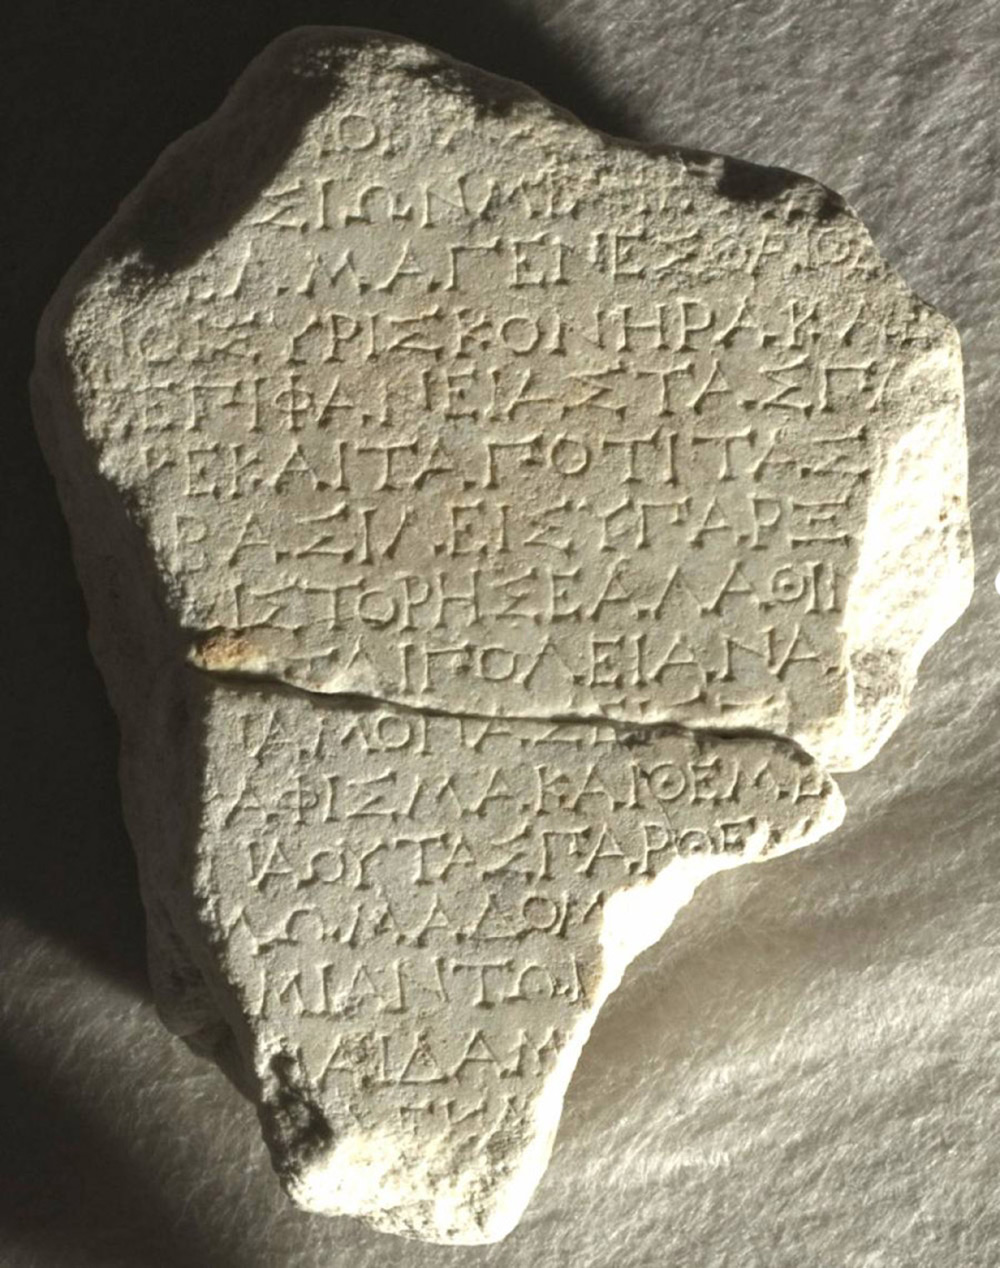 Ο
ΣΙΩΝΜΕ
ΛΜΑΓΕΝΕΣΘΑΙΘ
ΙΟΙΣΥΡΙΣΚΟΝΗΡΑΚΛΗ
ΕΠΙΦΑΝΕΙΑΣΤΑΣΠ
ΕΚΑΙΤΑΠΟΤΙΤΑΣ
ΒΑΣΙΛΕΙΣΥΠΑΡΞ
ΙΣΤΟΡΗΣΕΑΛΑΘΙΝ
ΤΑΙΠΟΛΕΙΑΝΑ
ΙΑΜΟΝΑΣΙ
ΑΦΙΣΜΑΚΑΙΘΕΜΕ
ΙΑΟΥΤΑΣΠΑΡΘΕ
ΛΩΜΑΔΟΜ
ΜΙΑΝΤΩΝ
ΑΙΔΑΜ